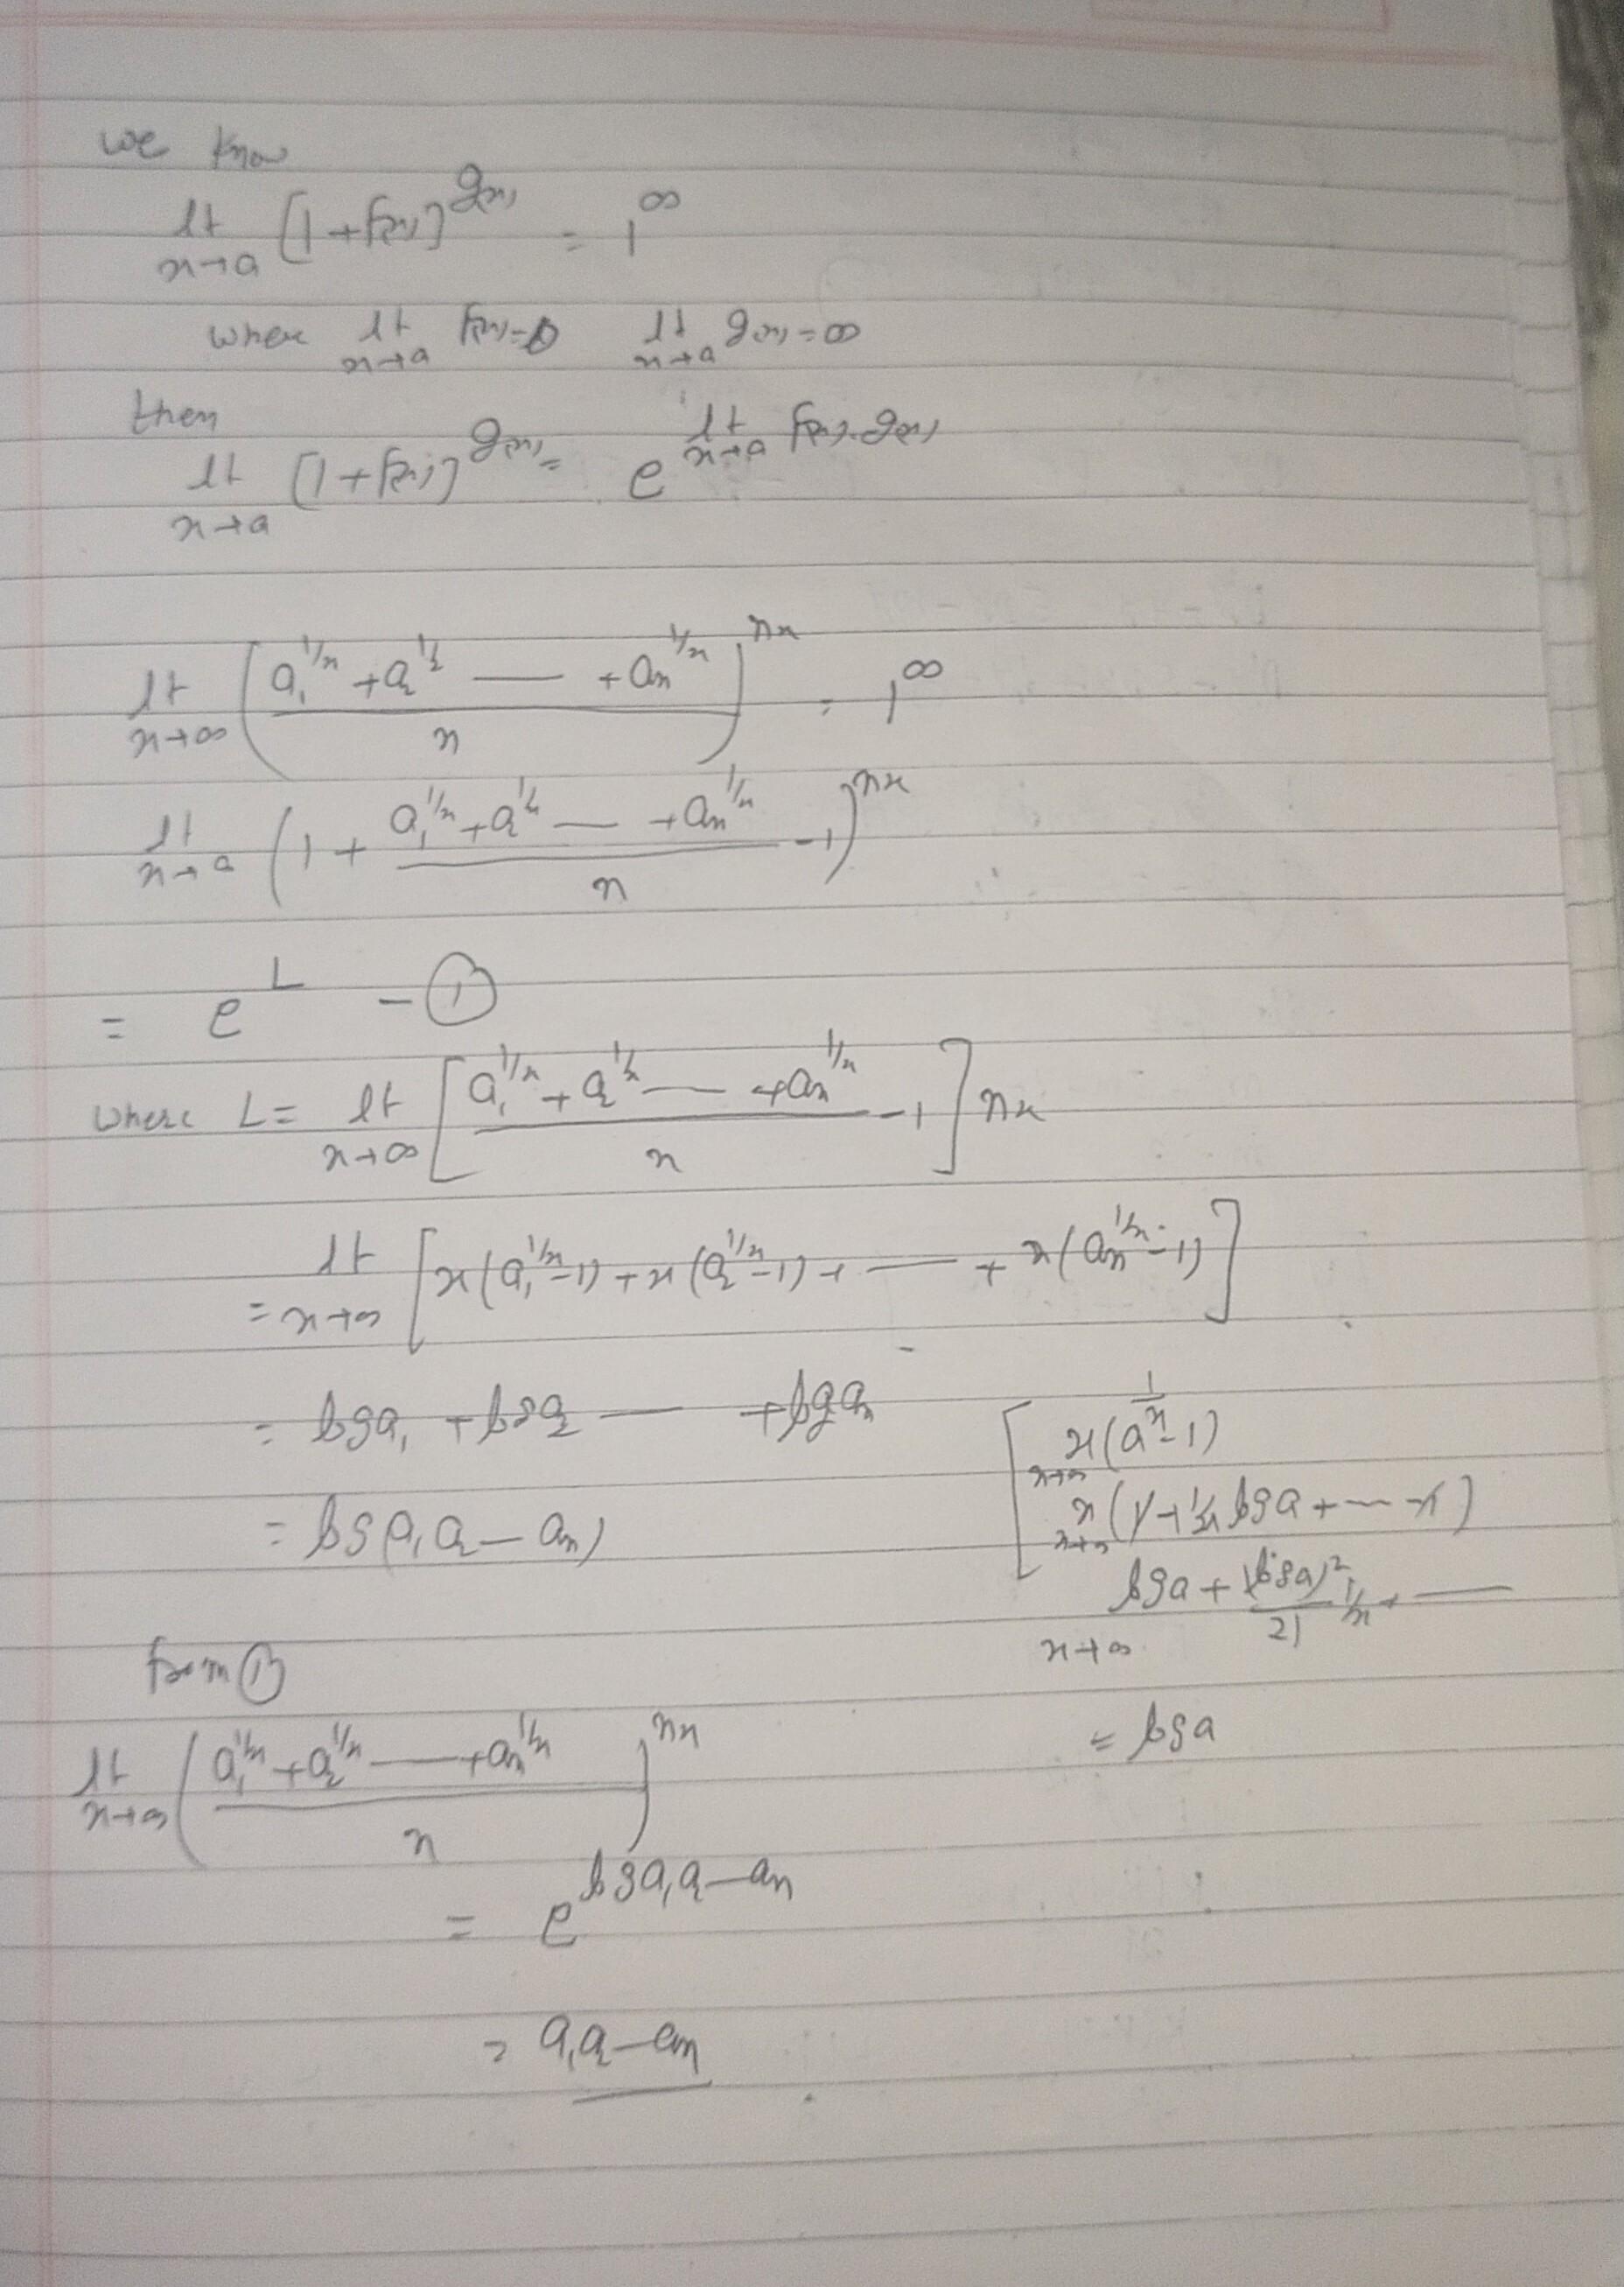 we know
lt x→a [1+f(x)]^g(x) = 1^∞
where lt x→a f(x)=0 lt x→a g(x)=∞
then
lt x→a [1+f(x)]^g(x) = e^(lt x→a f(x).g(x))
lt x→∞ ((a₁^1/x + a₂^1/x — + aₙ^1/x)/n)^nx = 1^∞
lt x→a (1 + (a₁^1/x + a₂^1/x — + aₙ^1/x)/n - 1)^nx
= e^L - ①
where L = lt x→∞ [(a₁^1/x + a₂^1/x — + aₙ^1/x)/n - 1] nx
= lt x→∞ [x(a₁^1/x - 1) + x(a₂^1/x - 1) + — + x(aₙ^1/x - 1)]
= log a₁ + log a₂ — + log aₙ
= log(a₁ a₂ — aₙ)
[x→∞ x(a^1/x - 1)
x→∞ x(1 + 1/x log a + --- - 1)
x→∞ log a + (log a)²/2! 1/x + —
= log a
from ①
lt x→∞ ((a₁^1/x + a₂^1/x — + aₙ^1/x)/n)^nx
= e^(log a₁ a₂ — aₙ)
= a₁ a₂ — aₙ